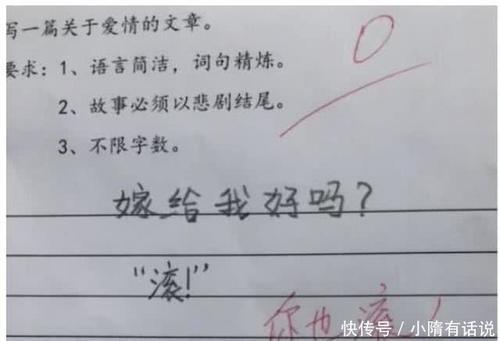 写一篇关于爱情的文章。
0
要求：1、语言简洁，词句精炼。
2、故事必须以悲剧结尾。
3、不限字数。
嫁给我好吗？
“滚！”
你也滚！
快传号／小隋有话说